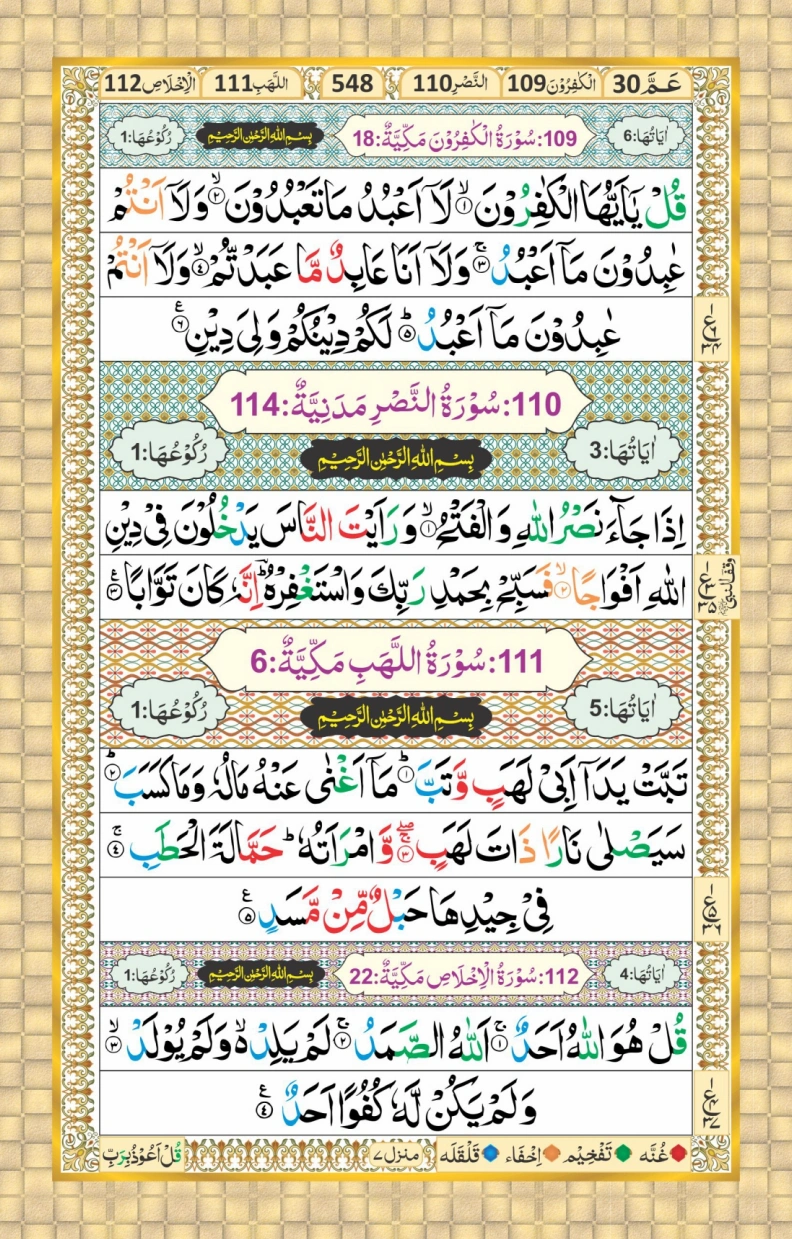 عَمَّ 30 الْكٰفِرُوْنَ 109 النَّصْرِ 110 548 اللَّهَبِ 111 الْاِخْلَاصِ 112
اٰيَاتُهَا:6 109: سُوْرَةُ الْكٰفِرُوْنَ مَكِّيَّةٌ:18 بِسْمِ اللّٰهِ الرَّحْمٰنِ الرَّحِيْمِ رُكُوْعُهَا:1
قُلْ يٰۤاَيُّهَا الْكٰفِرُوْنَ ۙ﴿۱﴾ لَاۤ اَعْبُدُ مَا تَعْبُدُوْنَ ۙ﴿۲﴾ وَلَاۤ اَنْتُمْ
عٰبِدُوْنَ مَاۤ اَعْبُدُ ۚ﴿۳﴾ وَلَاۤ اَنَا عَابِدٌ مَّا عَبَدْتُّمْ ۙ﴿۴﴾ وَلَاۤ اَنْتُمْ
عٰبِدُوْنَ مَاۤ اَعْبُدُ ؕ﴿۵﴾ لَكُمْ دِيْنُكُمْ وَلِيَ دِيْنِ ﴿۶﴾ ع
110: سُوْرَةُ النَّصْرِ مَدَنِيَّةٌ:114
اٰيَاتُهَا:3 بِسْمِ اللّٰهِ الرَّحْمٰنِ الرَّحِيْمِ رُكُوْعُهَا:1
اِذَا جَآءَ نَصْرُ اللّٰهِ وَالْفَتْحُ ۙ﴿۱﴾ وَرَاَيْتَ النَّاسَ يَدْخُلُوْنَ فِيْ دِيْنِ
اللّٰهِ اَفْوَاجًا ۙ﴿۲﴾ فَسَبِّحْ بِحَمْدِ رَبِّكَ وَاسْتَغْفِرْهُ ؔؕ اِنَّهٗ كَانَ تَوَّابًا ﴿۳﴾ ع
وقف النبی ﷺ
111: سُوْرَةُ اللَّهَبِ مَكِّيَّةٌ:6
اٰيَاتُهَا:5 بِسْمِ اللّٰهِ الرَّحْمٰنِ الرَّحِيْمِ رُكُوْعُهَا:1
تَبَّتْ يَدَاۤ اَبِيْ لَهَبٍ وَّتَبَّ ؕ﴿۱﴾ مَاۤ اَغْنٰى عَنْهُ مَالُهٗ وَمَا كَسَبَ ؕ﴿۲﴾
سَيَصْلٰى نَارًا ذَاتَ لَهَبٍ ۚۖ﴿۳﴾ وَّامْرَاَتُهٗ ؕ حَمَّالَةَ الْحَطَبِ ۚ﴿۴﴾
فِيْ جِيْدِهَا حَبْلٌ مِّنْ مَّسَدٍ ﴿۵﴾ ع
اٰيَاتُهَا:4 112: سُوْرَةُ الْاِخْلَاصِ مَكِّيَّةٌ:22 بِسْمِ اللّٰهِ الرَّحْمٰنِ الرَّحِيْمِ رُكُوْعُهَا:1
قُلْ هُوَ اللّٰهُ اَحَدٌ ۚ﴿۱﴾ اَللّٰهُ الصَّمَدُ ۚ﴿۲﴾ لَمْ يَلِدْ ۙ۬ وَلَمْ يُوْلَدْ ۙ﴿۳﴾
وَلَمْ يَكُنْ لَّهٗ كُفُوًا اَحَدٌ ﴿۴﴾ ع
غُنَّه تَفْخِيْم اِخْفَاء قَلْقَلَه منزل ۷ قُلْ اَعُوْذُ بِرَبِّ